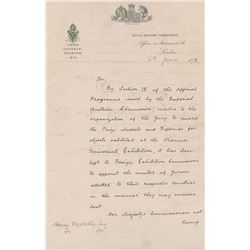 VIENNA
UNIVERSAL
EXHIBITION
1873
ROYAL BRITISH COMMISSION
Offices
London
6th June 1873
Sir,
By Section IV of the Official
Programme issued by the Imperial
Austrian Commission, relative to the
organization of the Jury to award the
Prize Medals and Diplomas for
objects exhibited at the Vienna
Universal Exhibition, it has been
left to Foreign Exhibition Commissions
to appoint the number of Jurors
allotted to their respective countries
in the manner they may consider
best.
Her Majesty's Commissioners not
having
Henry Vizetelly, Esq